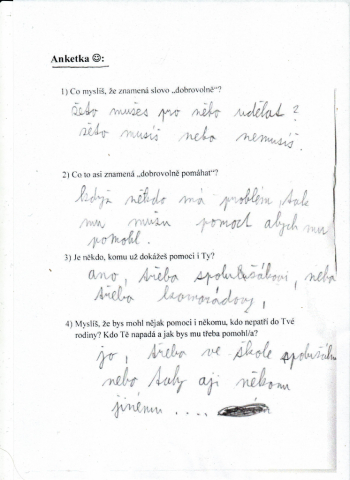 Anketka ☺:
1) Co myslíš, že znamená slovo „dobrovolně“?
žeto mušeš pro něho udělat?
žěto musíš nebo nemusíš.
2) Co to asi znamená „dobrovolně pomáhat“?
když někdo má problém, tak
mu mužu pomoct abych mu
pomohl.
3) Je někdo, komu už dokážeš pomoci i Ty?
ano, třeba spolužákovi, nebo
třeba kamarádovy,
4) Myslíš, že bys mohl nějak pomoci i někomu, kdo nepatří do Tvé
rodiny? Kdo Tě napadá a jak bys mu třeba pomohl/a?
jo, třeba ve škole
nebo taky aji někomu
jinému ....